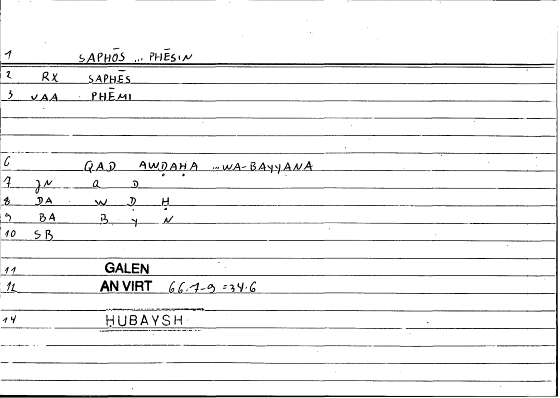 1 SAPHŌS ... PHĒSIN
2 RX SAPHĒS
3 VAA PHĒMI
6 QAD AWḌAḤA ...WA-BAYYANA
7 JN Q D
8 DA W Ḍ Ḥ
9 BA B Y N
10 SB
11 GALEN
12 AN VIRT 66.7-9 = 34.6
14 HUBAYSH